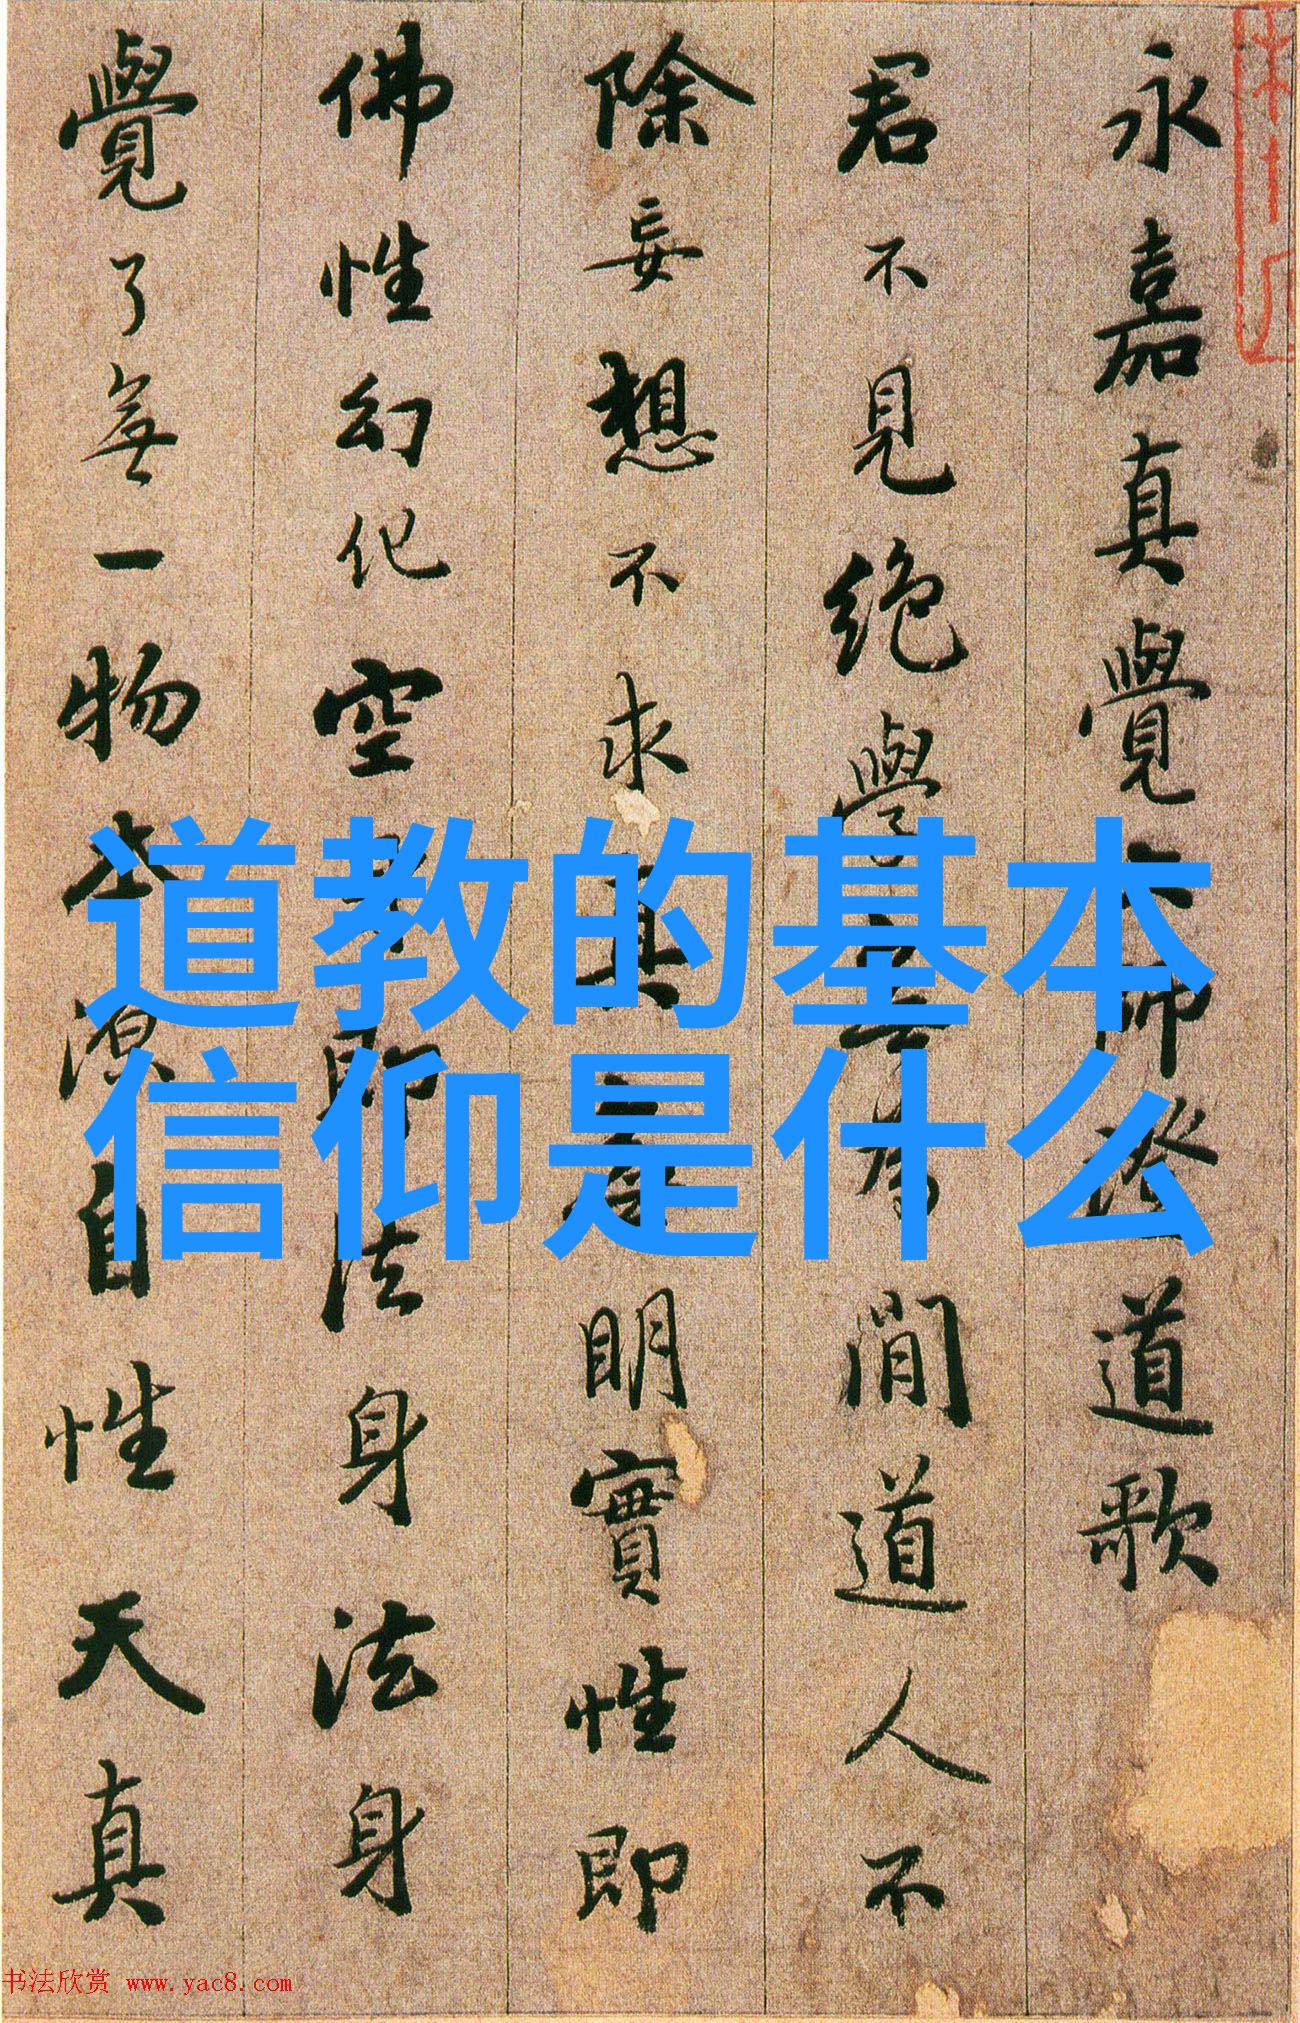 永嘉真覺大師證道歌
君不見絕學無為閒道人不
除妄想不求真無明實性即
佛性幻化空身即法身法身
覺了無一物本源自性天真
道教的基本
信仰是什么
书法欣赏 www.yac8.com